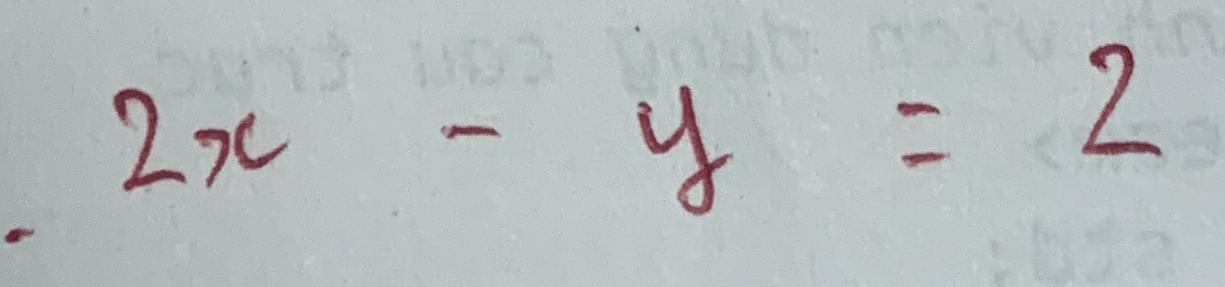 2x - y = 2